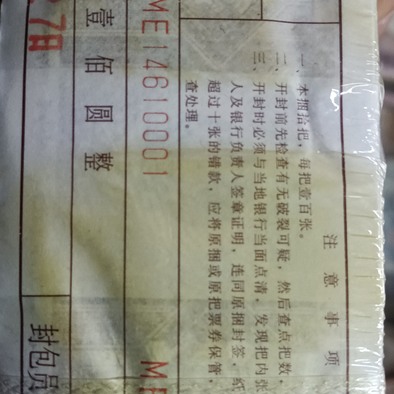 注意事项
一、本捆拾把，每把壹百张。
二、开封前先检查有无破裂可疑，然后查点把数，
三、开封时必须与当地银行当面点清，发现把内张
人及银行负责人签章证明，连同原捆封签，纸
超过十张的错款，应将原捆或原把票券保管，
查处理。
ME14610001 ME
壹佰圆整
封包员